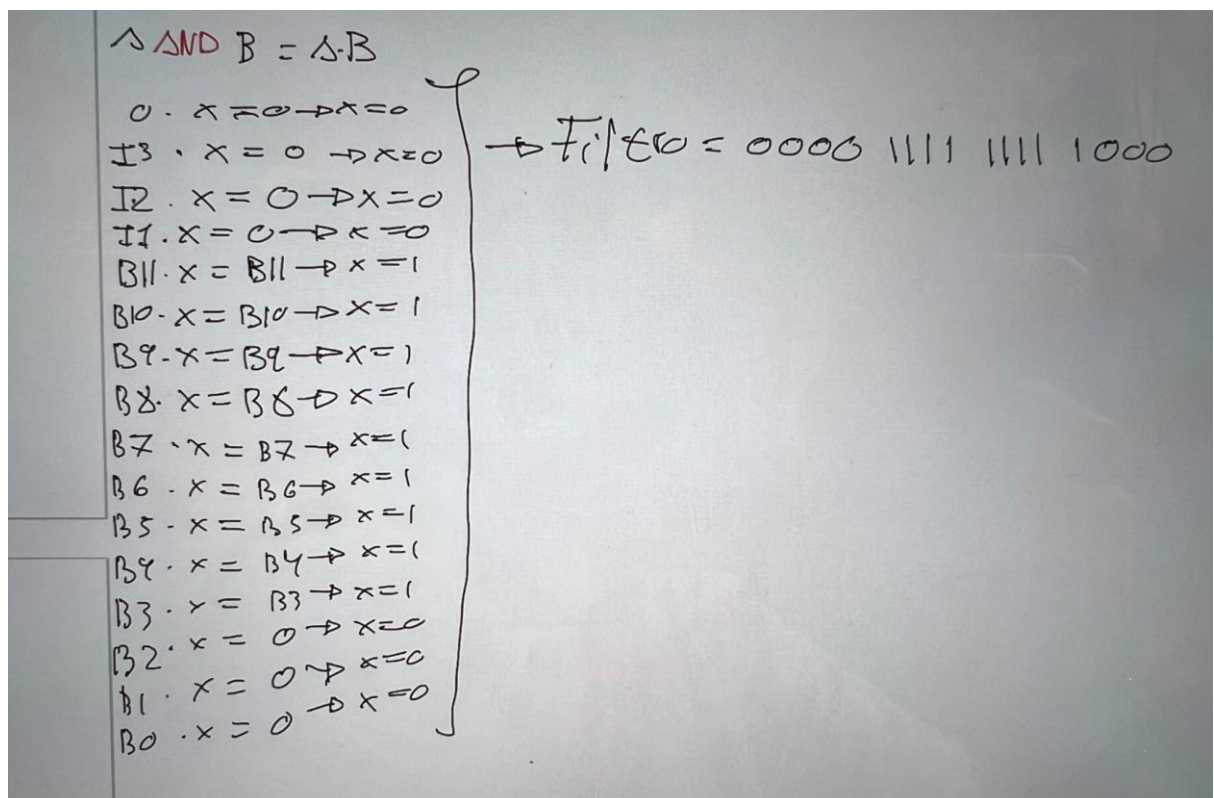 A AND B = A·B
0 · x = 0 → x = 0
I3 · x = 0 → x = 0
I2 · x = 0 → x = 0
I1 · x = 0 → x = 0
B11 · x = B11 → x = 1
B10 · x = B10 → x = 1
B9 · x = B9 → x = 1
B8 · x = B8 → x = 1
B7 · x = B7 → x = 1
B6 · x = B6 → x = 1
B5 · x = B5 → x = 1
B4 · x = B4 → x = 1
B3 · x = B3 → x = 1
B2 · x = 0 → x = 0
B1 · x = 0 → x = 0
B0 · x = 0 → x = 0
→ Filtro = 0000 1111 1111 1000